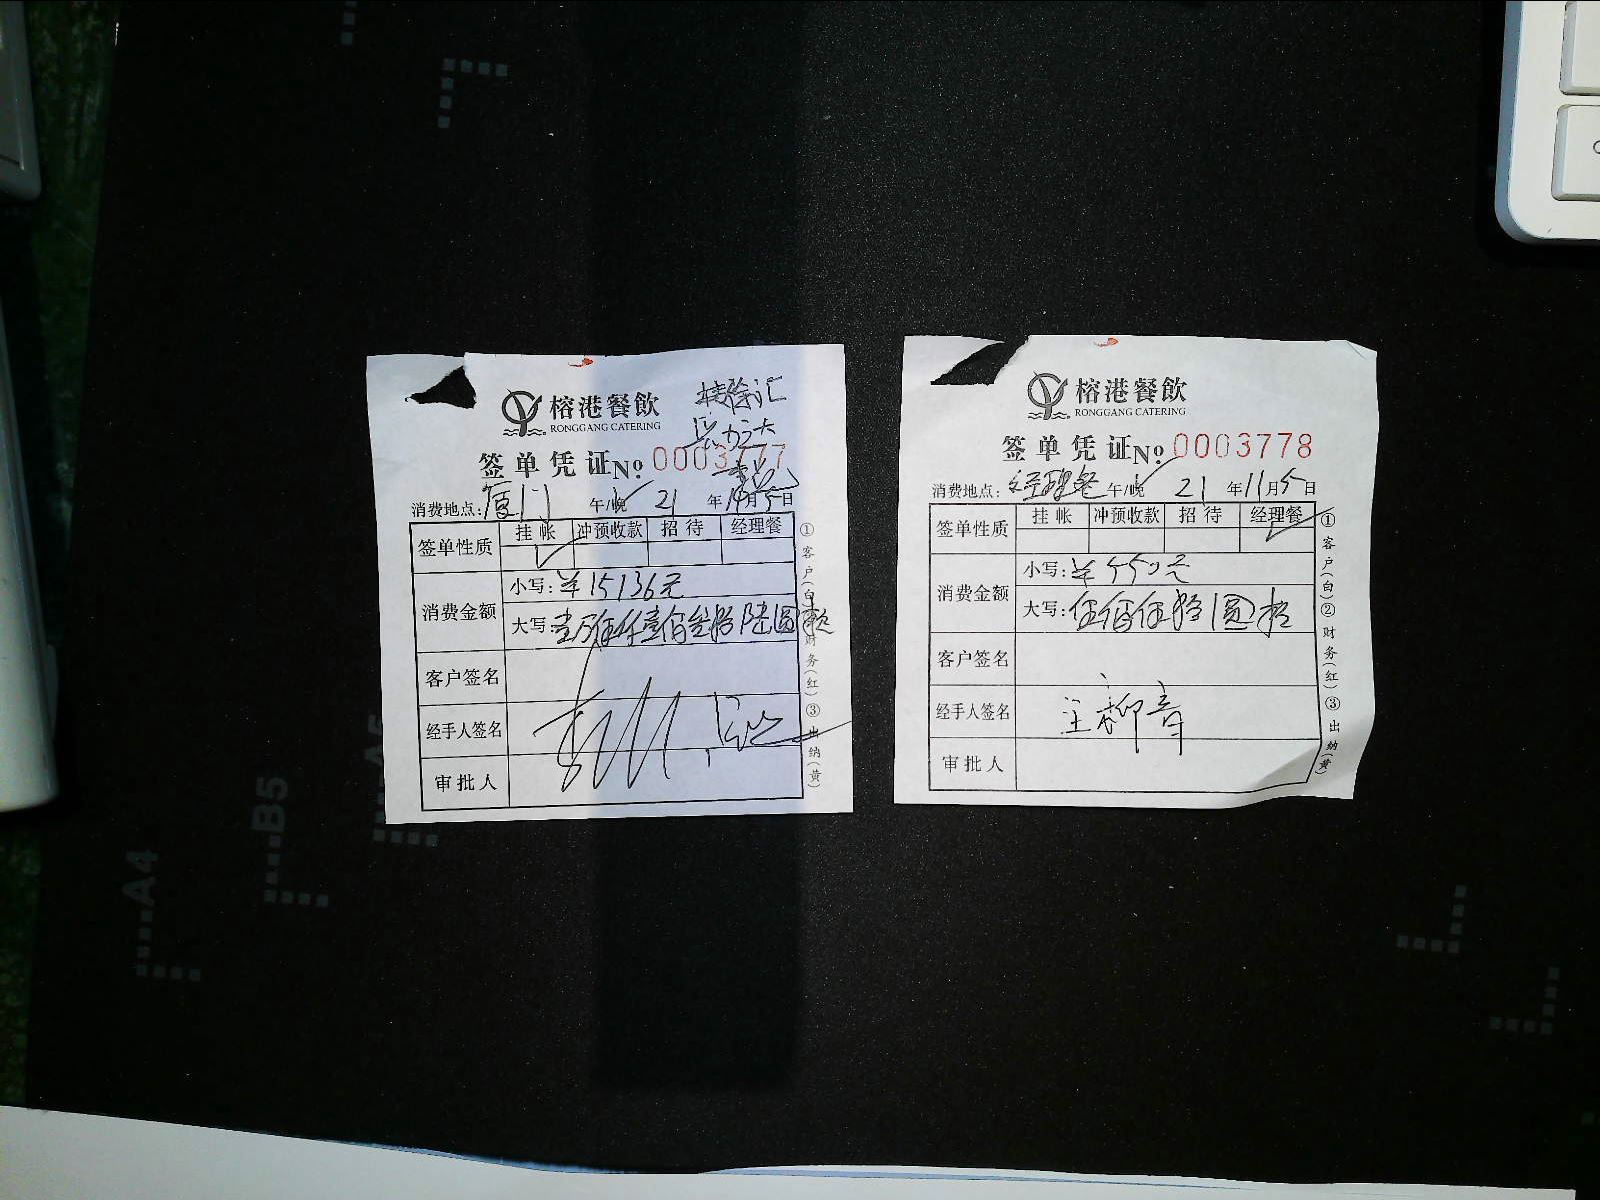 榕港餐飲
RONGGANG CATERING
签单凭证 No 0003777
消费地点：厦门 午/晚 21 年 11 月 5 日
签单性质 挂帐 冲预收款 招待 经理餐
消费金额 小写：¥15136元
大写：壹万伍仟壹佰叁拾陆圆整
客户签名
经手人签名
审批人
①客户(白)②财务(红)③出纳(黄)
榕港餐飲
RONGGANG CATERING
签单凭证 No 0003778
消费地点：经理餐 午/晚 21 年 11 月 5 日
签单性质 挂帐 冲预收款 招待 经理餐
消费金额 小写：¥550元
大写：伍佰伍拾圆整
客户签名
经手人签名
审批人
①客户(白)②财务(红)③出纳(黄)
A4
B5
A5